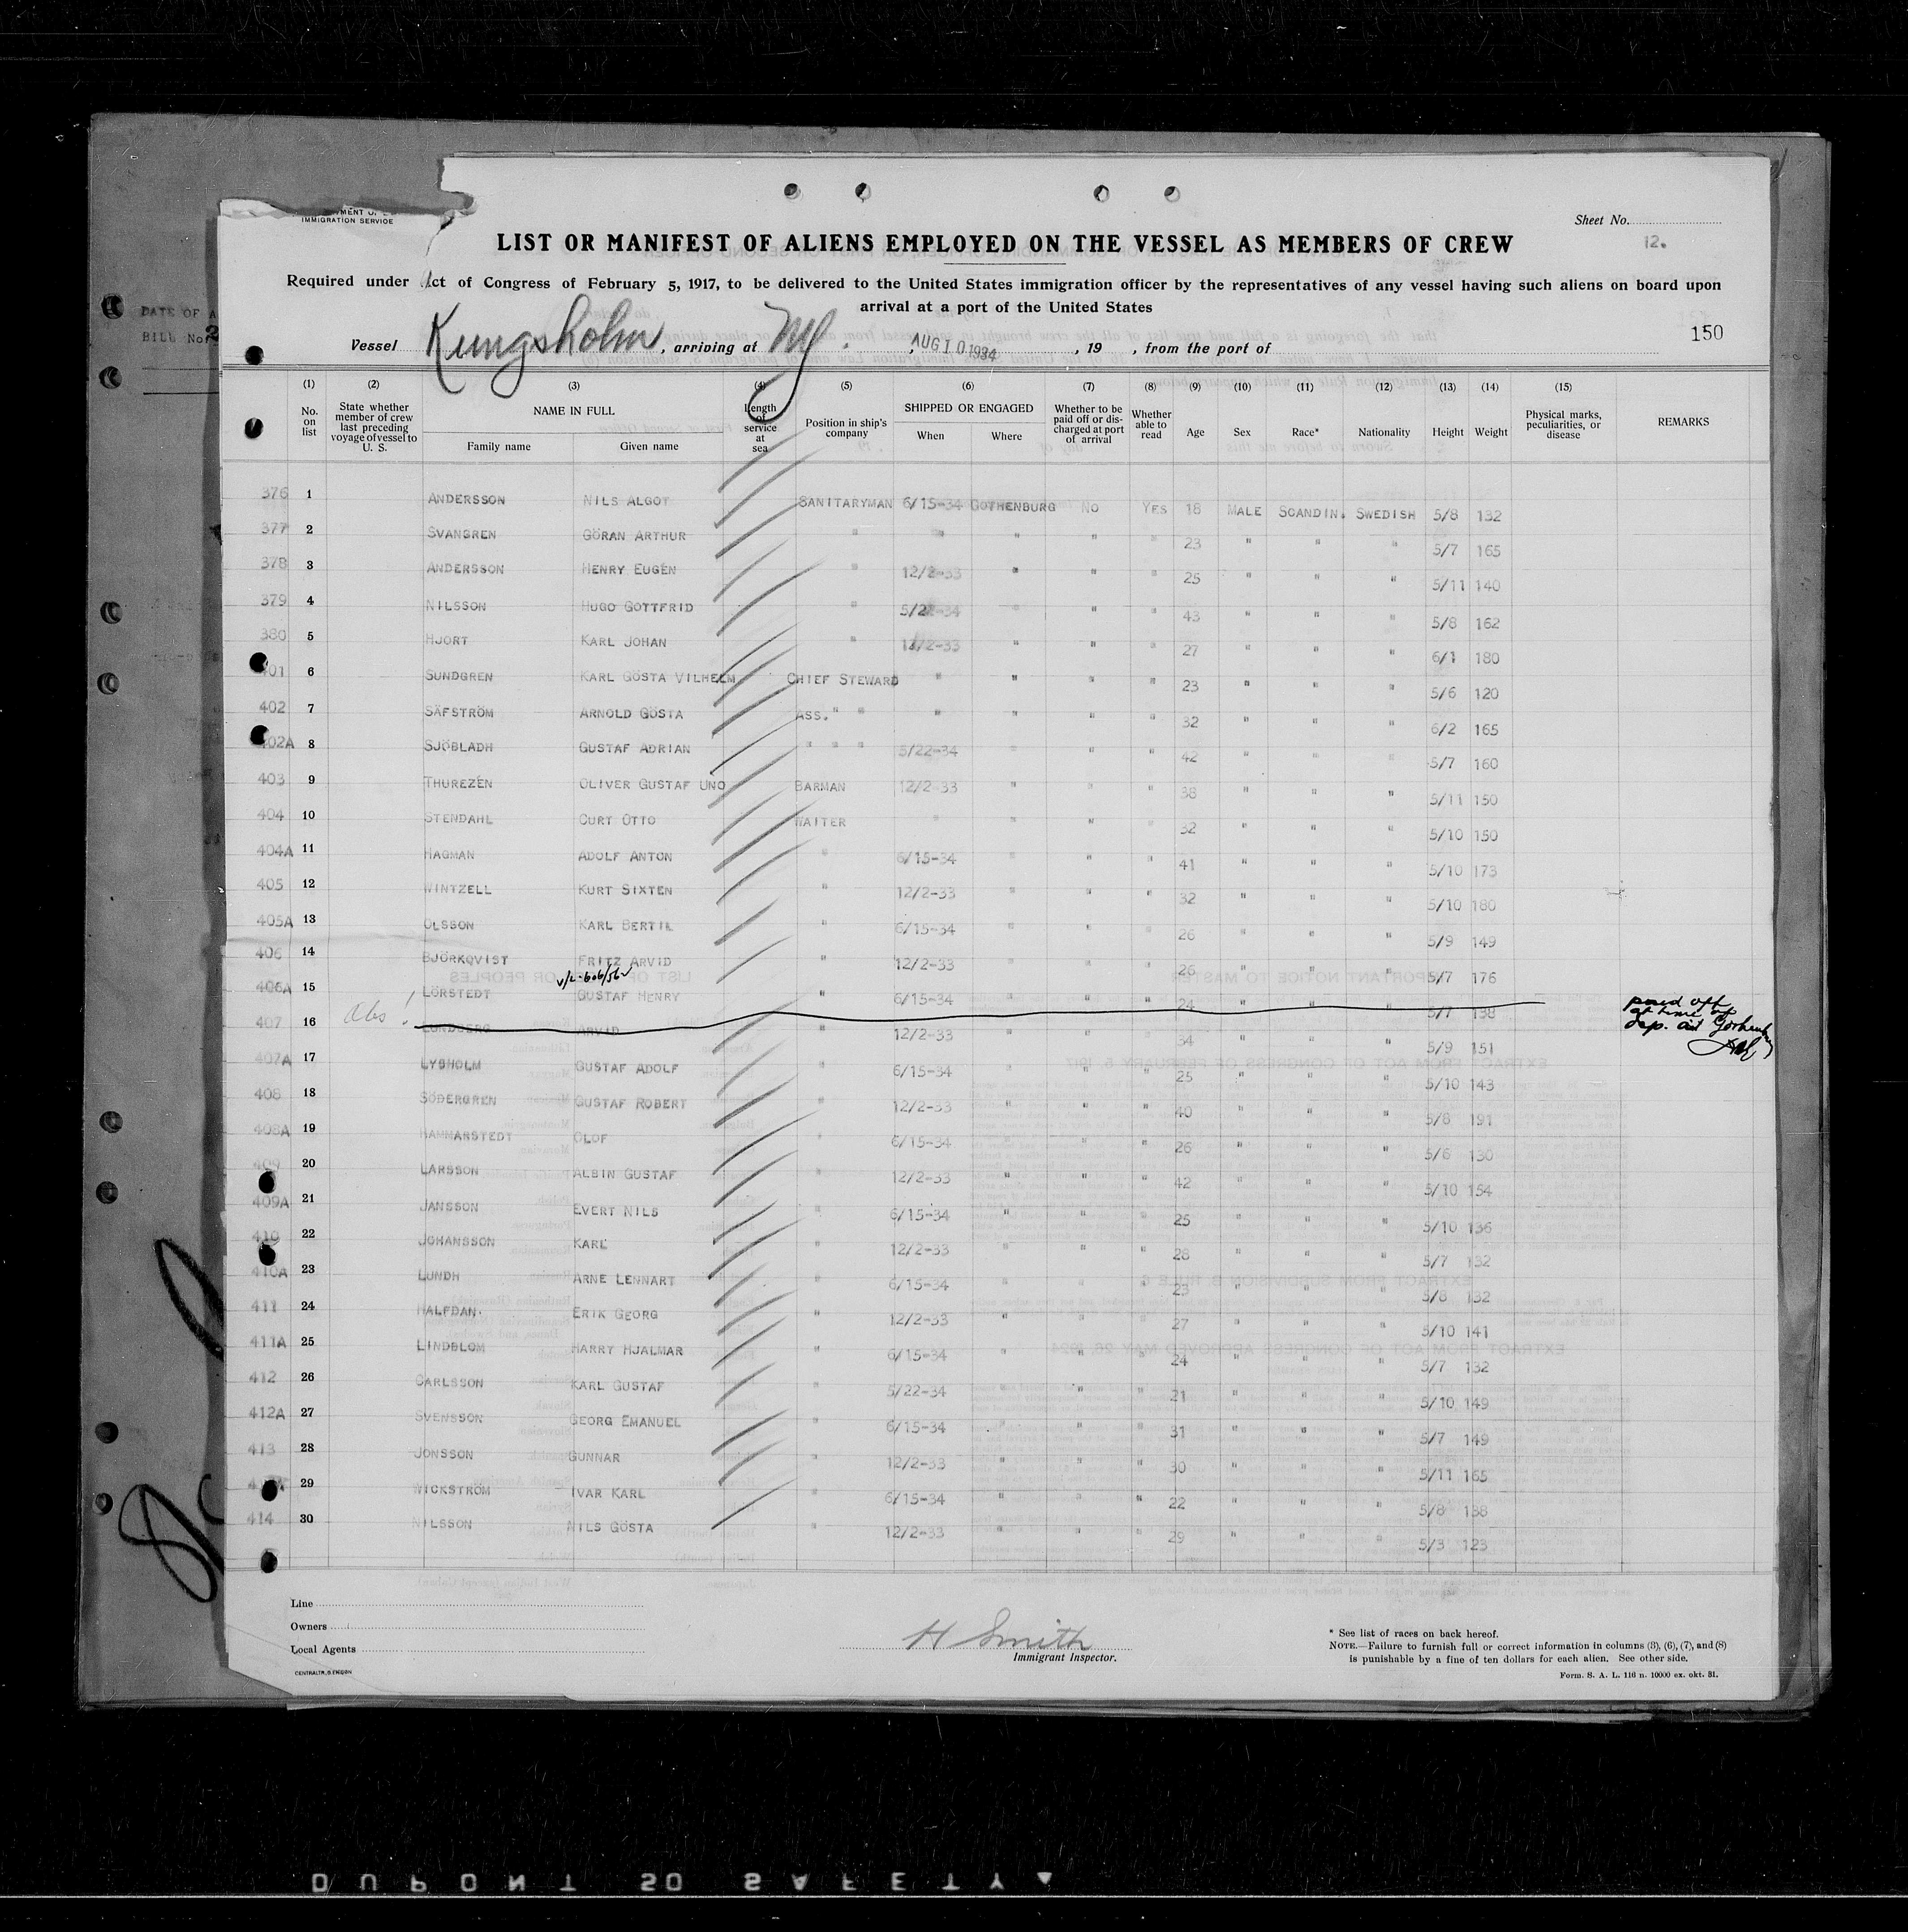 IMMIGRATION SERVICE
Sheet No.
12.
LIST OR MANIFEST OF ALIENS EMPLOYED ON THE VESSEL AS MEMBERS OF CREW
Required under Act of Congress of February 5, 1917, to be delivered to the United States immigration officer by the representatives of any vessel having such aliens on board upon
arrival at a port of the United States
DATE OF A
BILL No.
150
Vessel Kungsholm, arriving at NY. AUG 10 1934, 19 , from the port of
(1) (2) (3) (4) (5) (6) (7) (8) (9) (10) (11) (12) (13) (14) (15)
No. on list
State whether member of crew last preceding voyage of vessel to U. S.
NAME IN FULL
Family name Given name
Length of service at sea
Position in ship's company
SHIPPED OR ENGAGED
When Where
Whether to be paid off or discharged at port of arrival
Whether able to read
Age Sex Race* Nationality Height Weight
Physical marks, peculiarities, or disease
REMARKS
376 1 ANDERSSON NILS ALGOT SANITARYMAN 6/15-34 GOTHENBURG NO YES 18 MALE SCANDIN. SWEDISH 5/8 132
377 2 SVANGREN GÖRAN ARTHUR " " " " " 23 " " " 5/7 165
378 3 ANDERSSON HENRY EUGÉN " 12/2-33 " " " 25 " " " 5/11 140
379 4 NILSSON HUGO GOTTFRID " 5/22-34 " " 43 " " " 5/8 162
380 5 HJORT KARL JOHAN " 12/2-33 " " " 27 " " " 6/1 180
401 6 SUNDGREN KARL GÖSTA VILHELM CHIEF STEWARD " " " " 23 " " " 5/6 120
402 7 SÄFSTRÖM ARNOLD GÖSTA ASS. " " " " " " 32 " " " 6/2 165
402A 8 SJÖBLADH GUSTAF ADRIAN " " " 5/22-34 " " " 42 " " " 5/7 160
403 9 THUREZÉN OLIVER GUSTAF UNO BARMAN 12/2-33 " " " 38 " " " 5/11 150
404 10 STENDAHL CURT OTTO WAITER " " " " 32 " " " 5/10 150
404A 11 HAGMAN ADOLF ANTON " 6/15-34 " " " 41 " " " 5/10 173
405 12 WINTZELL KURT SIXTEN " 12/2-33 " " " 32 " " " 5/10 180
405A 13 OLSSON KARL BERTIL " 6/15-34 " " " 26 " " " 5/9 149
406 14 BJÖRKQVIST FRITZ ARVID " 12/2-33 " " " 26 " " " 5/7 176
406A 15 LÖRSTEDT GUSTAF HENRY " 6/15-34 " " " 24 " " " 5/7 138
407 16 LUNDBERG ARVID " 12/2-33 " " " 34 " " " 5/9 151
paid off
at time of
dep. at Gothenburg
407A 17 LYSHOLM GUSTAF ADOLF " 6/15-34 " " " 25 " " " 5/10 143
408 18 SÖDERGREN GUSTAF ROBERT " 12/2-33 " " " 40 " " " 5/8 191
408A 19 HAMMARSTEDT OLOF " 6/15-34 " " " 26 " " " 5/6 130
409 20 LARSSON ALBIN GUSTAF " 12/2-33 " " " 42 " " " 5/10 154
409A 21 JANSSON EVERT NILS " 6/15-34 " " " 25 " " " 5/10 136
410 22 JOHANSSON KARL " 12/2-33 " " " 28 " " " 5/7 132
410A 23 LUNDH ARNE LENNART " 6/15-34 " " " 23 " " " 5/8 132
411 24 HALFDAN. ERIK GEORG " 12/2-33 " " " 27 " " " 5/10 141
411A 25 LINDBLOM HARRY HJALMAR " 6/15-34 " " " 24 " " " 5/7 132
412 26 CARLSSON KARL GUSTAF " 5/22-34 " " " 21 " " " 5/10 149
412A 27 SVENSSON GEORG EMANUEL " 6/15-34 " " " 31 " " " 5/7 149
413 28 JONSSON GUNNAR " 12/2-33 " " " 30 " " " 5/11 165
29 WICKSTRÖM IVAR KARL " 6/15-34 " " " 22 " " " 5/8 138
414 30 NILSSON NILS GÖSTA " 12/2-33 " " " 29 " " " 5/3 123
Line
Owners
Local Agents
H Smith
Immigrant Inspector.
* See list of races on back hereof.
NOTE.—Failure to furnish full or correct information in columns (3), (6), (7), and (8)
is punishable by a fine of ten dollars for each alien. See other side.
Form. S. A. L. 116 n. 10000 ex. okt. 31.
DUPONT 50 SAFETY